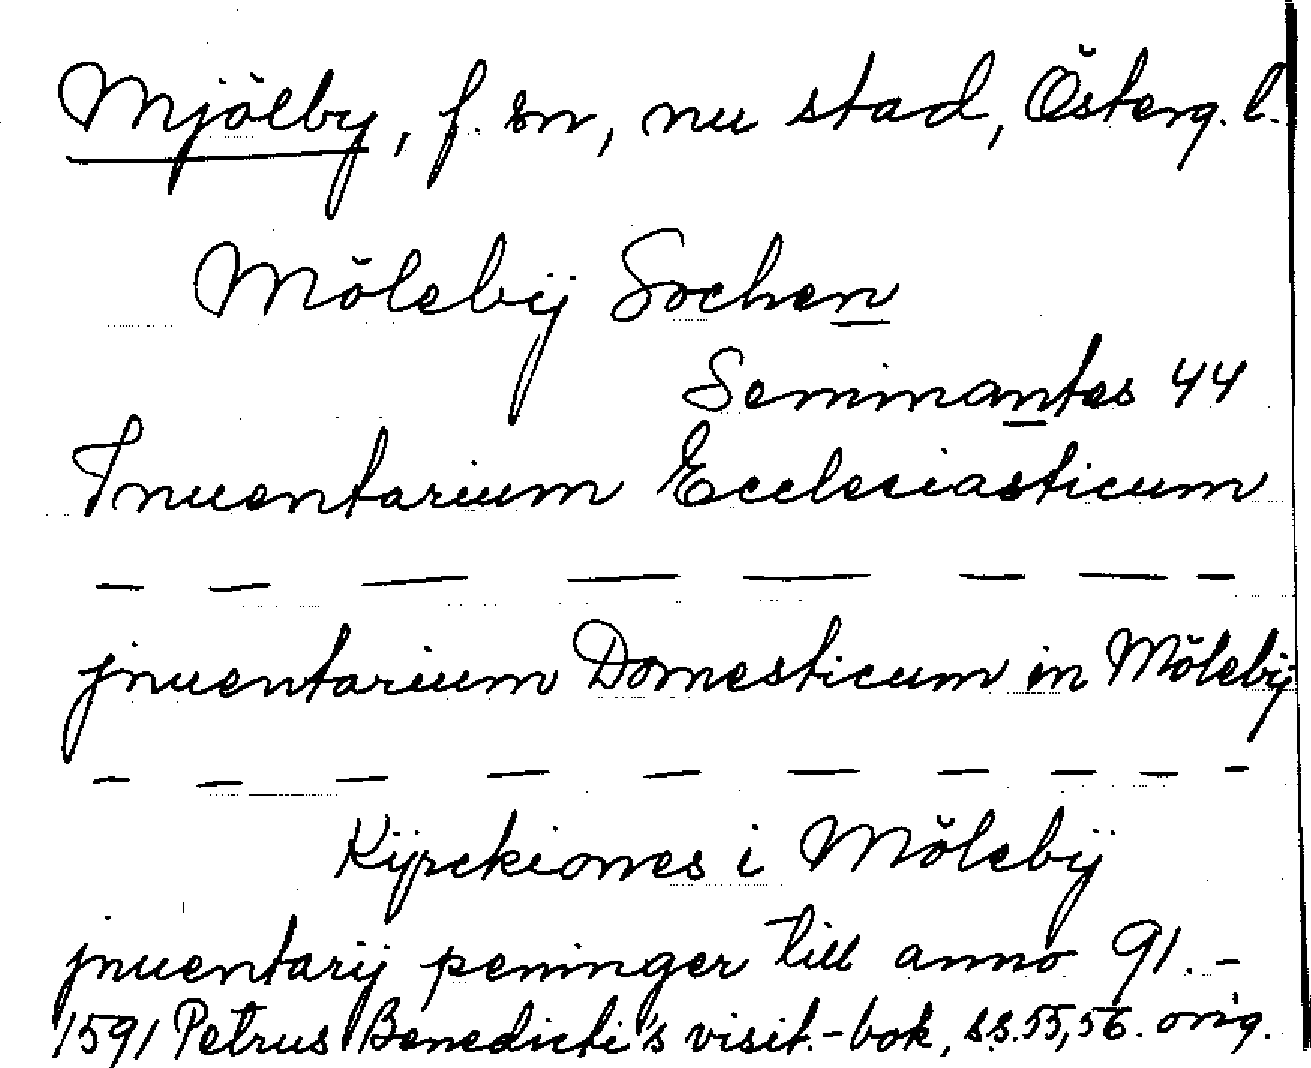 Mjölby, f. sn, nu stad, Österg. l.
Mölebÿ Sochen
Seminantes 44
Inuentarium Ecclesiasticum
— — — — — — — —
jnuentarium Domesticum in Mölebÿ
— — — — — — — — — —
Kÿrckiones i Mölebÿ
jnuentarÿ peninger till anno 91. –
1591 Petrus Benedicti's visit.-bok, ss. 55, 56. orig.